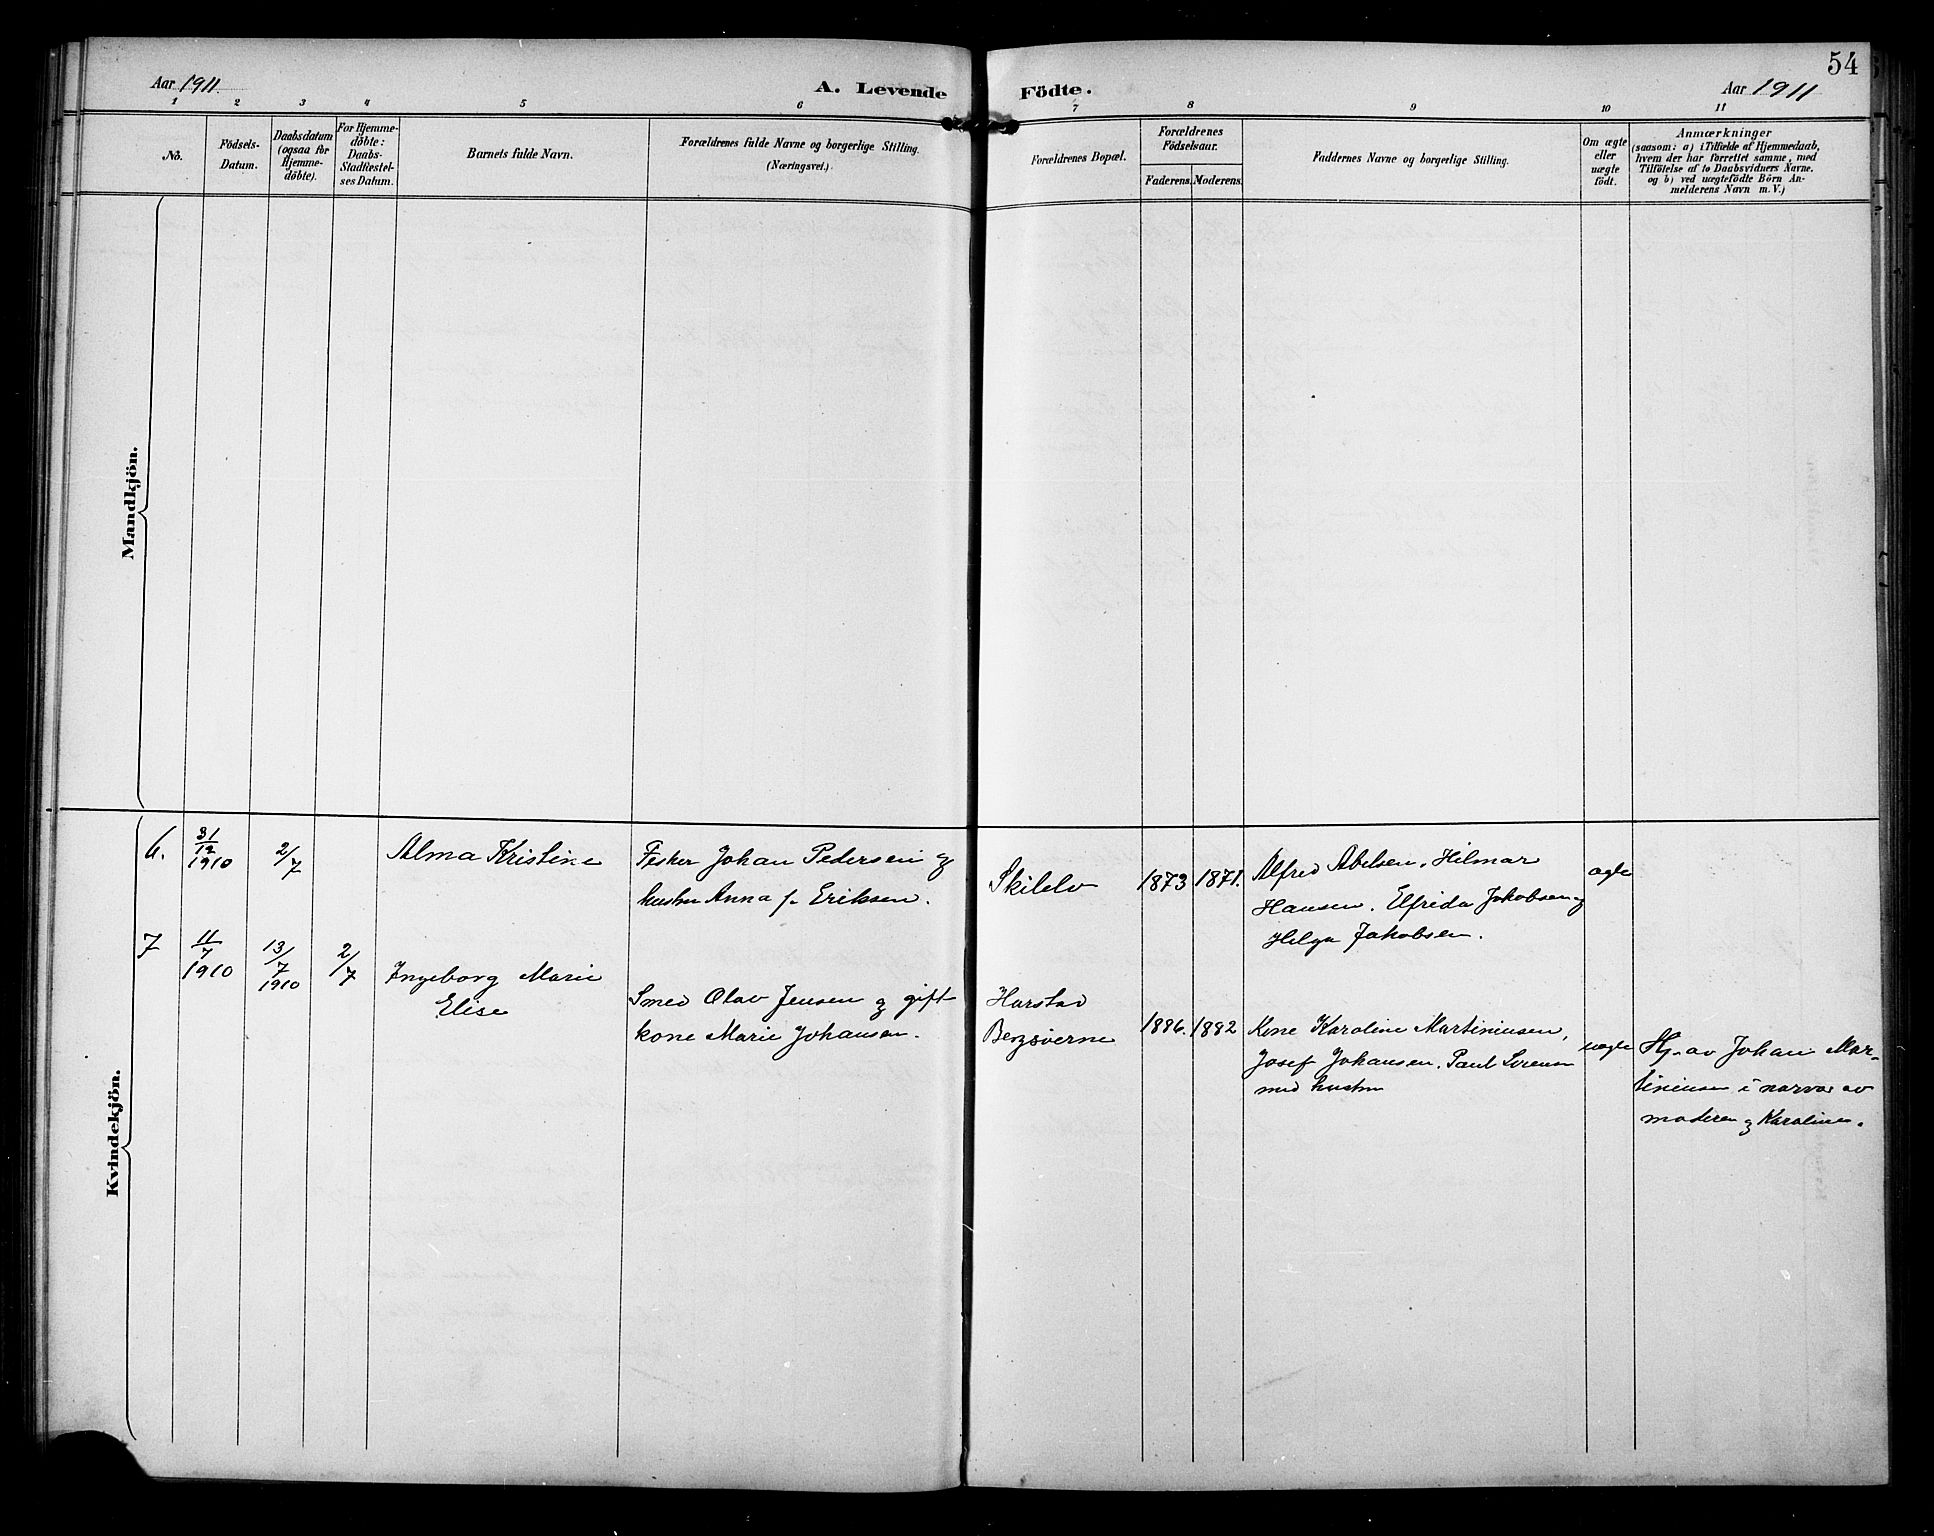 54
Aar 1911.
A. Levende Födte.
Aar 1911
1 2 3 4 5 6 7 8 9 10 11
No.
Födsels-
Datum.
Daabsdatum
(ogsaa for
Hjemme-
döbte).
For Hjemme-
döbte:
Daabs-
Stadfæstel-
ses Datum.
Barnets fulde Navn.
Forældrenes fulde Navne og borgerlige Stilling.
(Næringsvei.)
Forældrenes Bopæl.
Forældrenes
Födselsaar.
Faderens. Moderens.
Faddernes Navne og borgerlige Stilling.
Om ægte
eller
uægte
födt.
Anmærkninger
(saasom: a) i Tilfælde af Hjemmedaab,
hvem der har forrettet samme, med
Tilföielse af to Daabsvidners Navne.
og b) ved uægtefödte Börn An-
melderens Navn m. V.)
Mandkjön.
Kvindekjön.
6.
31/12
1910
2/7
Alma Kristine
Fisker Johan Pedersen og
hustru Anna f. Eriksen.
Skilelv
1873 1871.
Alfred Abelsen, Hilmar
Hansen, Elfrida Jakobsen og
Helga Jakobsen.
ægte
7
11/7
1910
13/7
1910
2/7
Ingeborg Marie
Elise
Smed Olav Jensen og gift
kone Marie Johansen.
Harstad
Bergsverne
1886. 1882
Kone Karoline Martiniusen,
Josef Johansen, Paul Sørensen
med hustru
uægte
Hj. av Johan Mar-
tiniusen i nærvær av
moderen og Karoline.